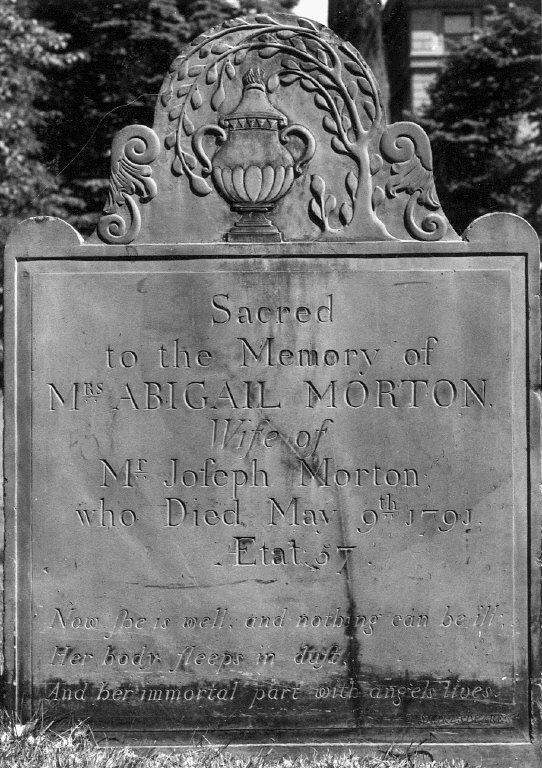 Sacred
to the Memory of
Mrs ABIGAIL MORTON.
Wife of
Mr Joſeph Morton
who Died May 9th 1791.
Ætat. 57
Now ſhe is well, and nothing can be ill;
Her body ſleeps in duſt,
And her immortal part with angels lives.